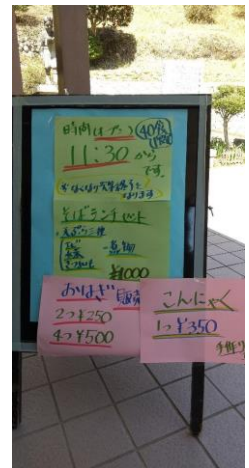 時間(オープン) 40分
11:30から
です。
なくなり次第終了と
なります
そばランチセット
¥1000
おはぎ販売
2つ¥250
4つ¥500
こんにゃく
1つ¥350
手作り